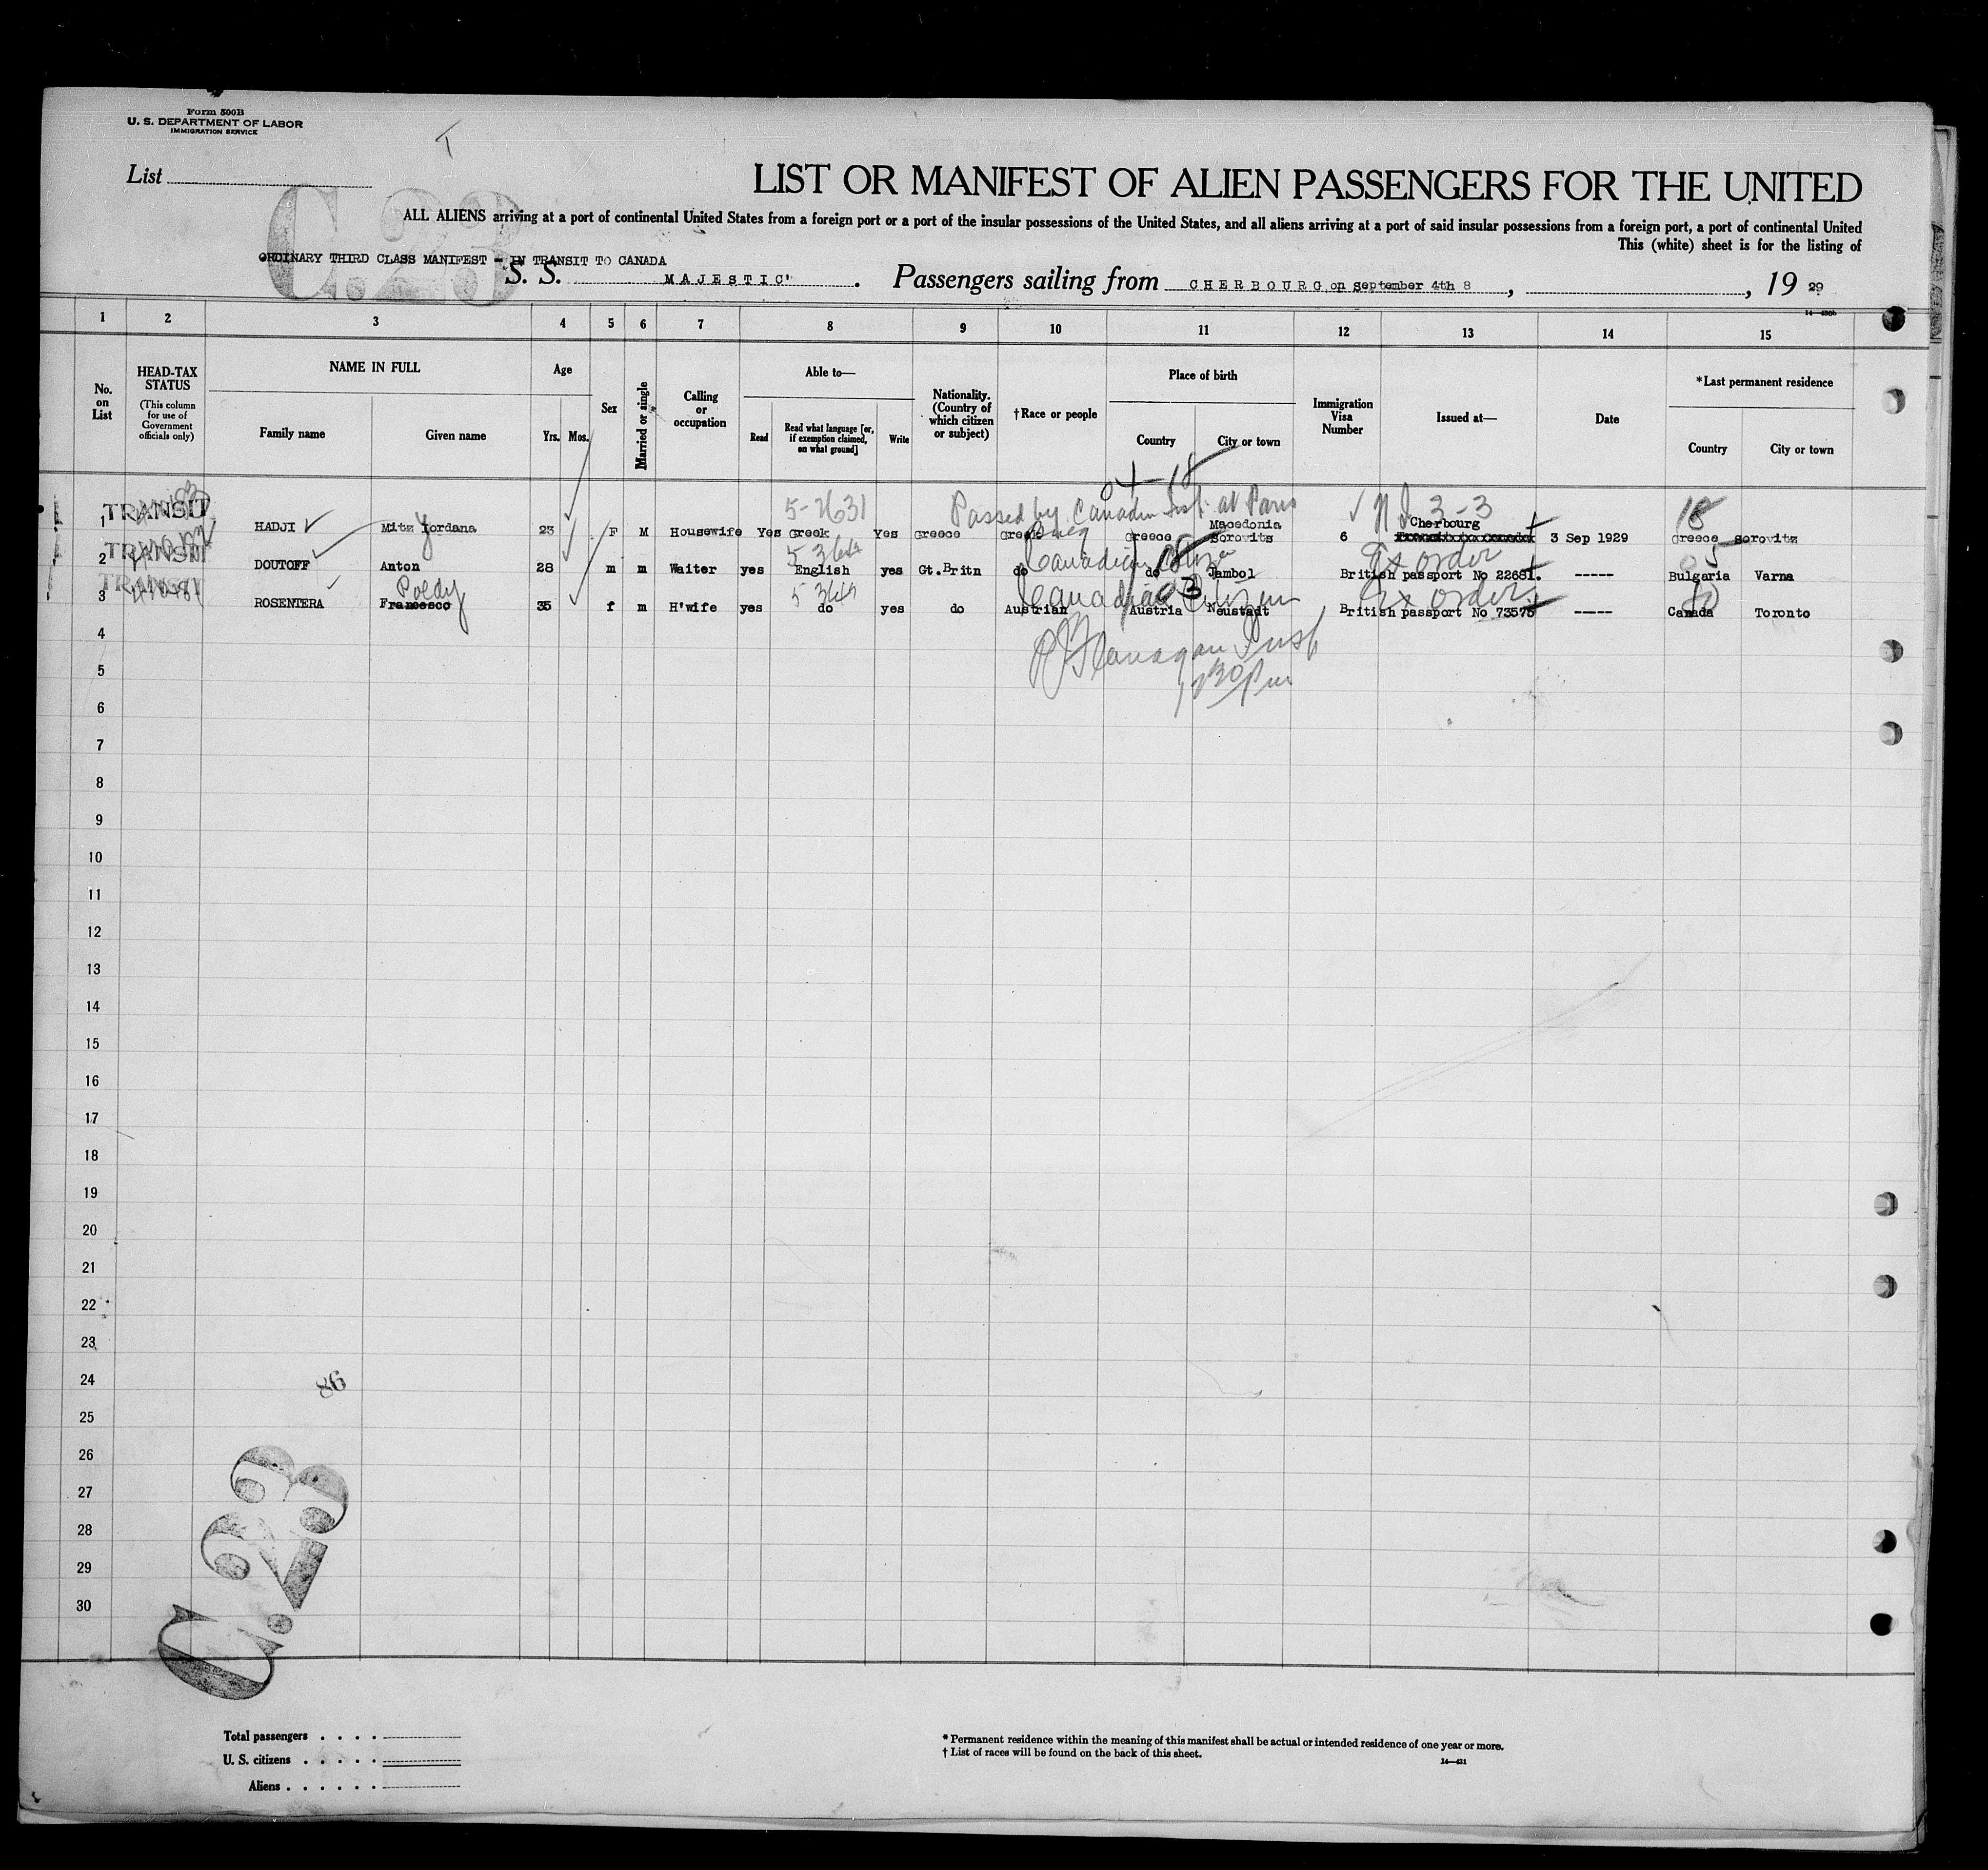 Form 500B
U. S. DEPARTMENT OF LABOR
IMMIGRATION SERVICE
List
C.23
LIST OR MANIFEST OF ALIEN PASSENGERS FOR THE UNITED
ALL ALIENS arriving at a port of continental United States from a foreign port or a port of the insular possessions of the United States, and all aliens arriving at a port of said insular possessions from a foreign port, a port of continental United
This (white) sheet is for the listing of
ORDINARY THIRD CLASS MANIFEST - IN TRANSIT TO CANADA
S. S. MAJESTIC" . Passengers sailing from CHERBOURG on september 4th 8 , , 19 29
1 2 3 4 5 6 7 8 9 10 11 12 13 14 15
No. on List
HEAD-TAX STATUS (This column for use of Government officials only)
NAME IN FULL
Family name Given name
Age
Yrs. Mos.
Sex
Married or single
Calling or occupation
Able to—
Read Read what language [or, if exemption claimed, on what ground] Write
Nationality. (Country of which citizen or subject)
†Race or people
Place of birth
Country City or town
Immigration Visa Number
Issued at—
Date
*Last permanent residence
Country City or town
5-2631 Passed by Canadian Insp. at Paris 3-3 18
Macedonia Cherbourg
1 TRANSIT HADJI Mitz Yordana 23 F M Housewife Yes Greek Yes Greece Greek Greece Sorovits 6 3 Sep 1929 Greece Sorovitz
5 364 Canadian Citizen Ex order 5
2 TRANSIT DOUTOFF Anton 28 m m Waiter yes English yes Gt.Britn do do Jambol British passport No 22681. ----- Bulgaria Varna
Poldy 5 364 Canadian Citizen Ex order
3 TRANSIT ROSENTERA Francesco 35 f m H'wife yes do yes do Austrian Austria Neustadt British passport No 73575 ----- Canada Toronto
4
Flanagan Insp
5
130 Pm
6
7
8
9
10
11
12
13
14
15
16
17
18
19
20
21
22
23
24
86
25
26
27
28
29
30
C.23
Total passengers . . . .
U. S. citizens . . . . .
Aliens . . . . . .
* Permanent residence within the meaning of this manifest shall be actual or intended residence of one year or more.
† List of races will be found on the back of this sheet.
14—431